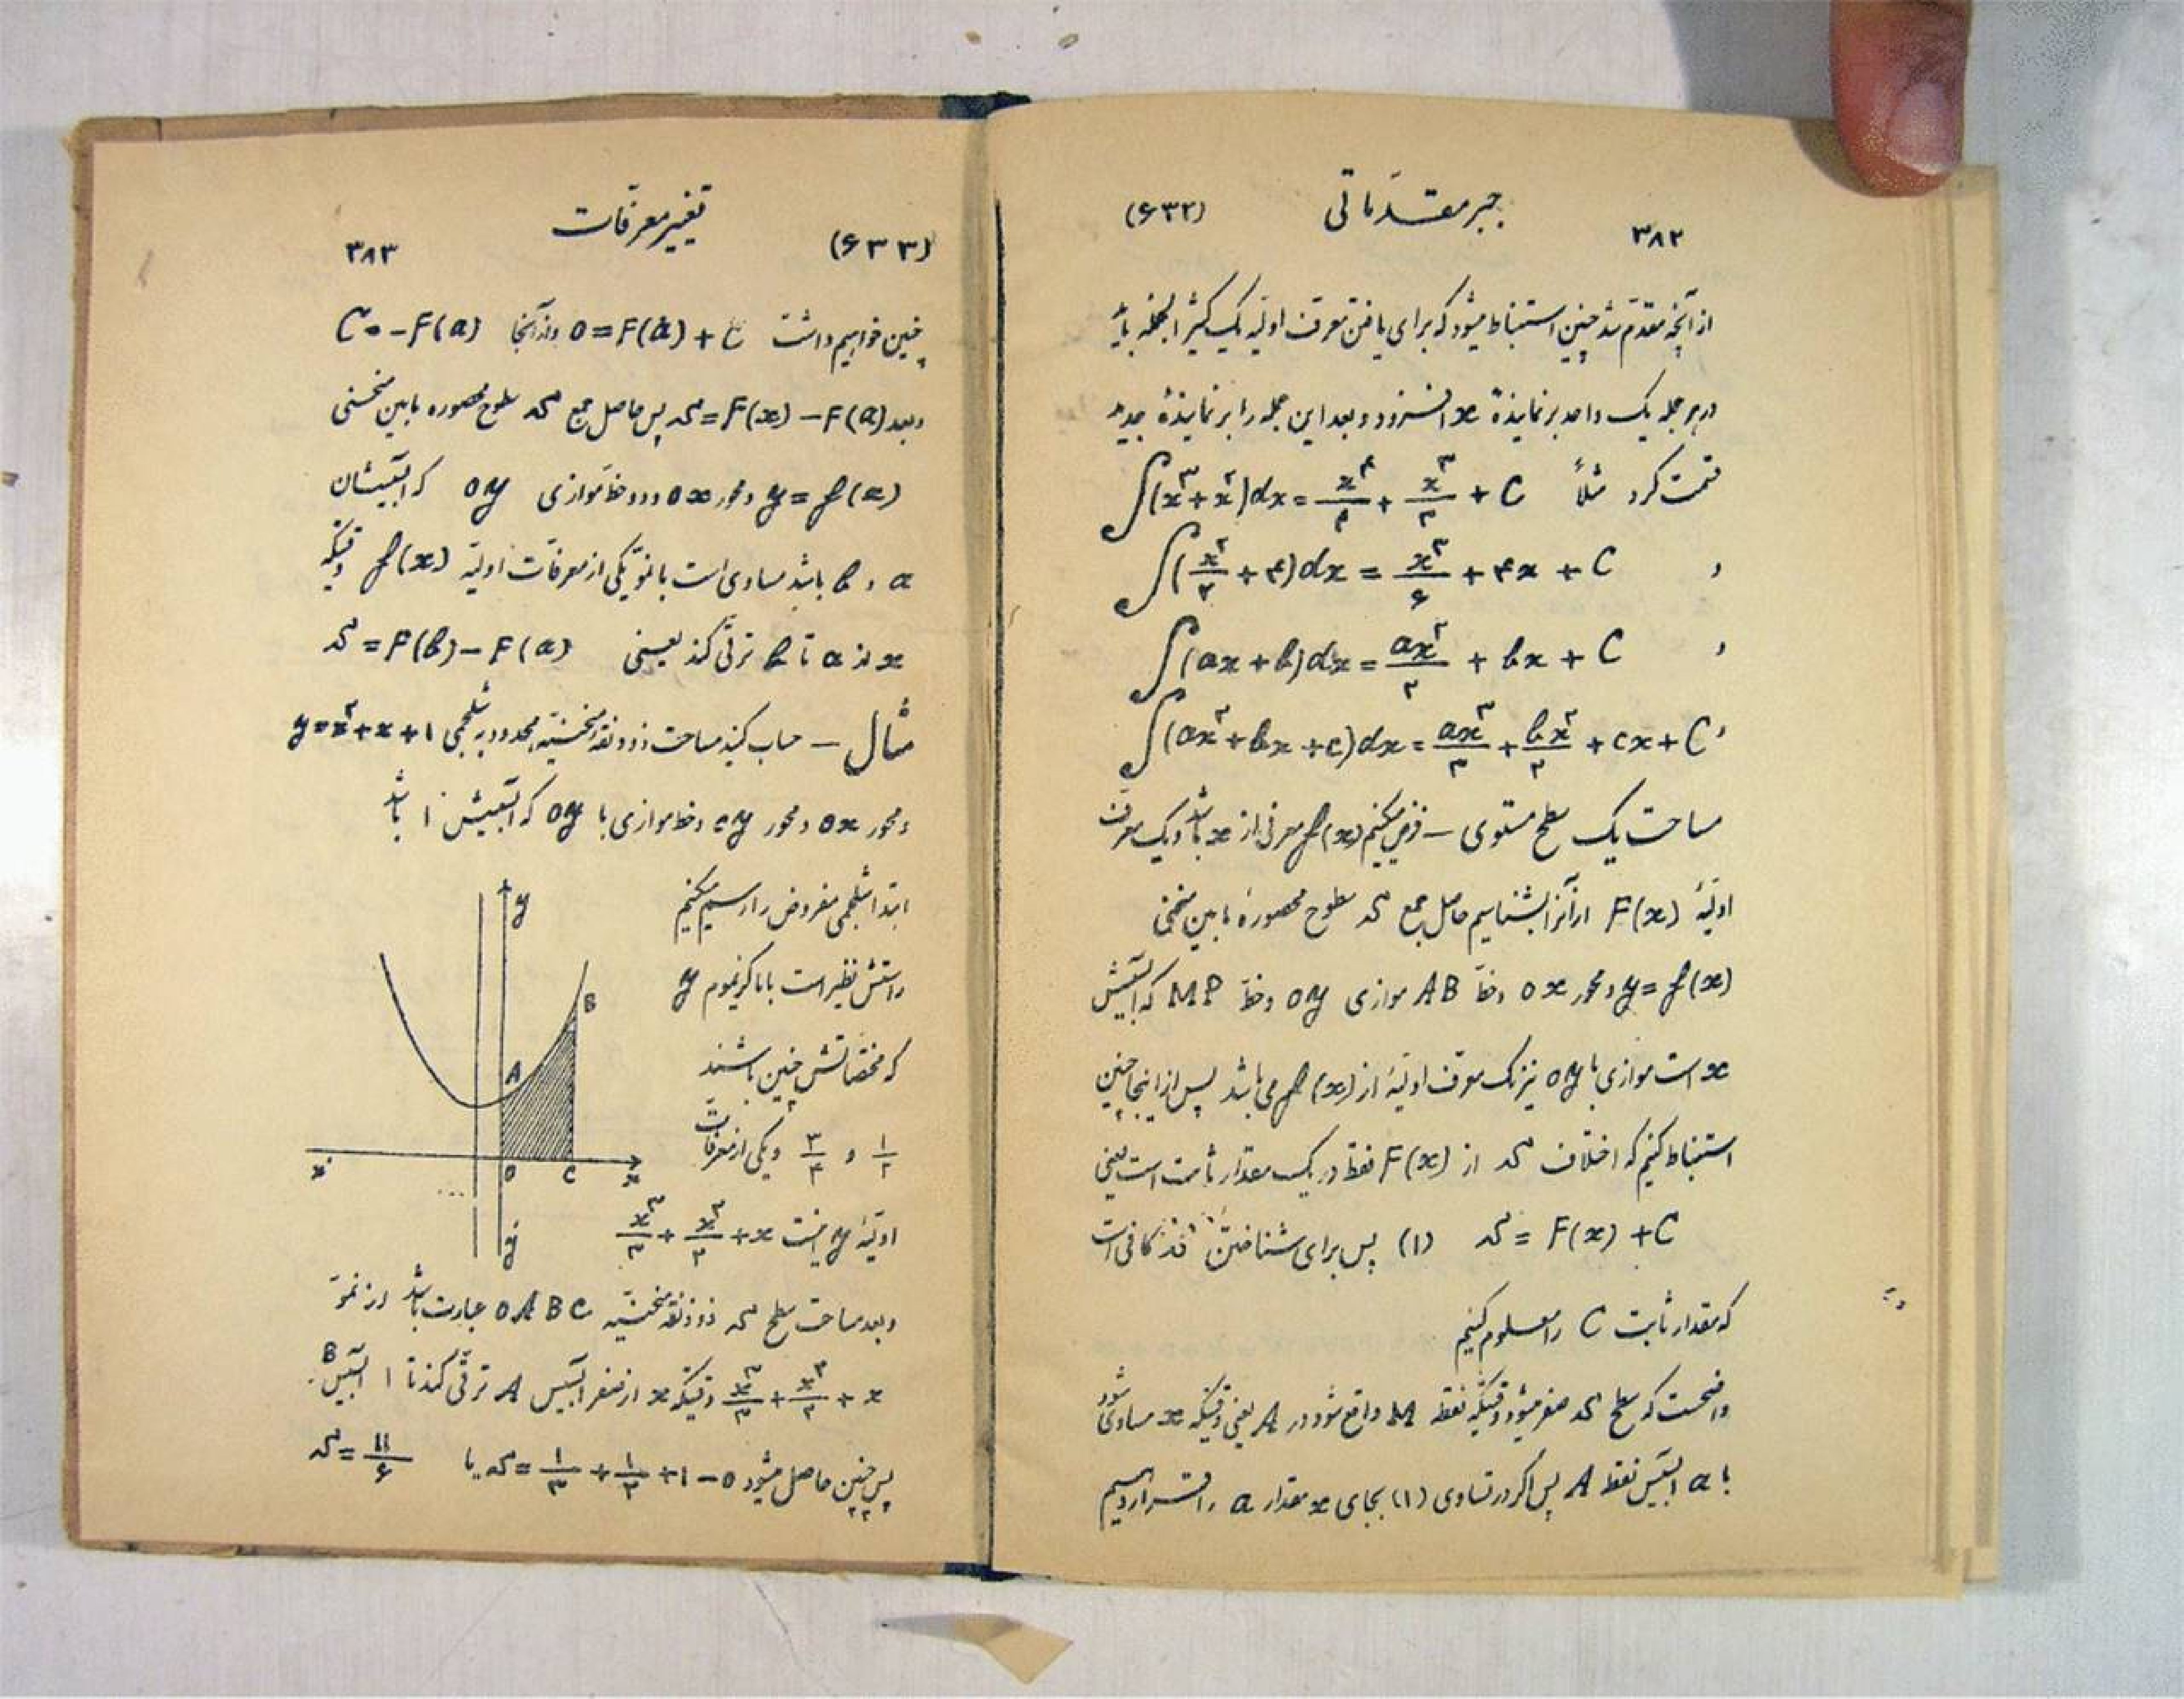 ۳۸۲ جبر مقدّماتی (۶۳۲)
از آنچه مقدّم شد چنین استنباط میشود که برای یافتن معرف اولیّه یک کثیر الجمله باید
در هر جمله یک واحد بر نمایندهٔ x افزود و بعد این جمله را بر نمایندهٔ جدید
قسمت کرد مثلاً ∫(x³+x²)dx = x⁴/۴ + x³/۳ + C
و ∫(x²/۲ + ۴)dx = x³/۶ + ۴x + C
و ∫(ax+b)dx = ax²/۲ + bx + C
و ∫(ax²+bx+c)dx = ax³/۳ + bx²/۲ + cx + C
مساحت یک سطح مستوی – فرض میکنیم f(x) معرفی از x باشد و یک معرف
اولیّهٔ F(x) از آنرا بشناسیم حاصل جمع سطوح محصورهٔ مابین منحنی
y = f(x) و محور ox و خطّ AB موازی oy و خطّ MP که ابسیسش
x است موازی با oy نیز یک معرف اولیّه از f(x) می باشد پس از اینجا چنین
استنباط کنیم که اختلاف از F(x) فقط در یک مقدار ثابت است یعنی
= F(x) + C (۱) پس برای شناختن کافی است
که مقدار ثابت C را معلوم کنیم
واضحست که سطح صفر میشود وقتیکه نقطه M واقع شود در A یعنی وقتیکه x مساوی شود
با a ابسیس نقطه A پس اگر در تساوی (۱) بجای x مقدار a را قرار دهیم
(۶۳۳) تغییر معرفات ۳۸۳
چنین خواهیم داشت 0 = F(a) + C و از آنجا C = -F(a)
و بعد = F(x) - F(a) پس حاصل جمع سطوح محصوره مابین منحنی
y = f(x) و محور ox و دو خطّ موازی oy که ابسیسشان
a و b باشد مساوی است با نموّ یکی از معرفات اولیّه f(x) وقتیکه
x از a تا b ترقّی کند یعنی = F(b) - F(a)
مثال – حساب کنید مساحت ذوذنقه منحنیه محدود به شلجمی y = x² + x + ۱
و محور ox و محور oy و خط موازی با oy که ابسیسش ۱ باشد
ابتدا شلجمی مفروض را رسم میکنیم
راستش نظیر است با ماکزیموم y
که مختصاتش چنین باشند
۱/۲ و ۳/۴ و یکی از معرفات
اولیّه y اینست x³/۳ + x²/۲ + x
y
B
A
x' O C x
y'
و بعد مساحت سطح ذوذنقه منحنیّه OABC عبارت باشد از نموّ
x³/۳ + x²/۲ + x وقتیکه x از صفر ابسیس A ترقّی کند تا ۱ ابسیس B
پس چنین حاصل میشود = ۱/۳ + ۱/۲ + ۱ - 0 یا = ۱۱/۶